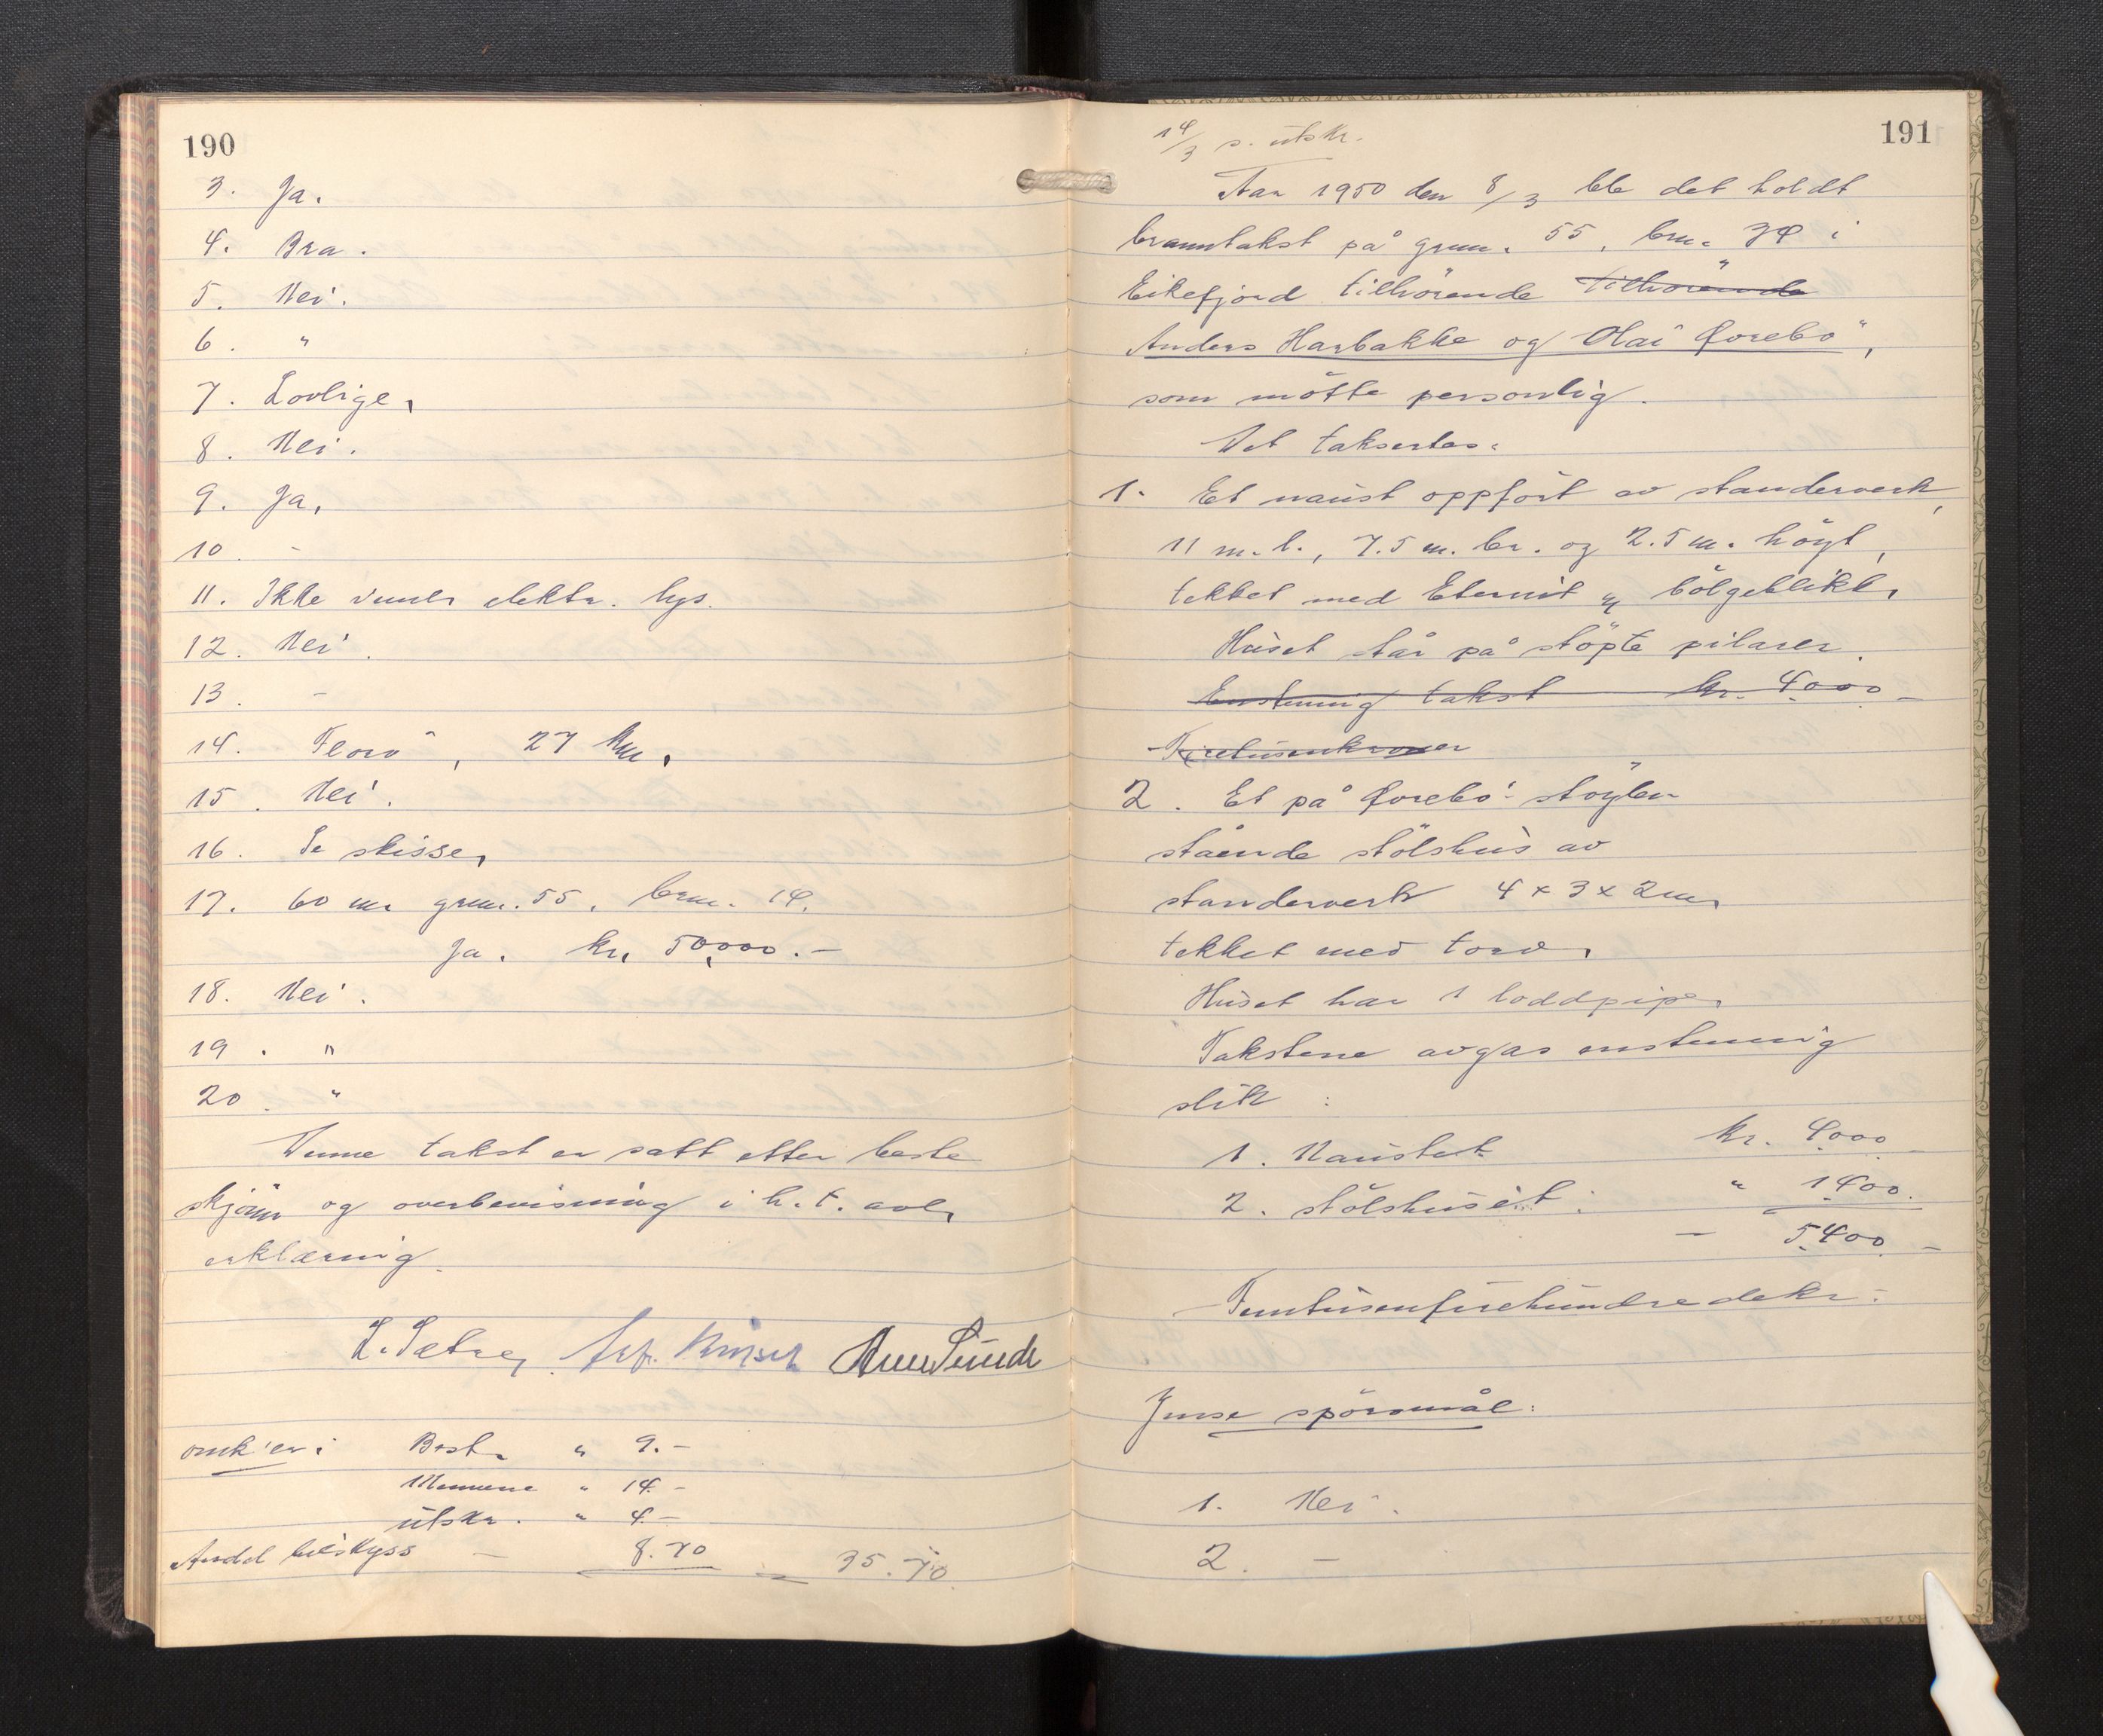 190
3. Ja.
4. Bra.
5. Nei.
6. "
7. Lovlige.
8. Nei.
9. Ja.
10. -
11. Ikke unnt. elektr. lys.
12. Nei.
13. -
14. Florö, 27 km.
15. Nei.
16. Se skisse.
17. 60 m. gnr. 55, bnr. 14.
Ja. kr. 50,000.-
18. Nei.
19. "
20. "
Denne takst er satt etter beste
skjönn og overbevisning i h.t. avl.
erklæring.
L. Sætre,
omk'er: Best. " 9.-
Mennene " 14.-
utskr. " 4.-
Andel bilskyss - 8.70 = 35.70
191
14/3 s. utskr.
Aar 1950 den 8/3 ble det holdt
branntakst på gnr. 55, bnr. 34 i
Eikefjord tilhörende tilhörende
Anders Harbakke og Olai Gorebö,
som mötte personlig.
Det takseres:
1. Et naust oppfört av standerverk,
11 m. l., 7.5 m. br. og 2.5 m. höyt,
tekket med Eternit og bölgeblikk.
Huset står på stöpte pilarer.
Enstemmig takst kr. 4.000.-
Firetusenkroner
2. Et på Gorebö-stöylen
stående stölshus av
standerverk 4 x 3 x 2 m,
tekket med torv.
Huset har 1 loddpipe.
Takstene avgas enstemmig
slik:
1. Naustet kr. 4.000.-
2. Stölshuset: " 1.400.
- 5.400.-
Femtusenfirehundredekr.-
Jense spörsmål:
1. Nei.
2. -